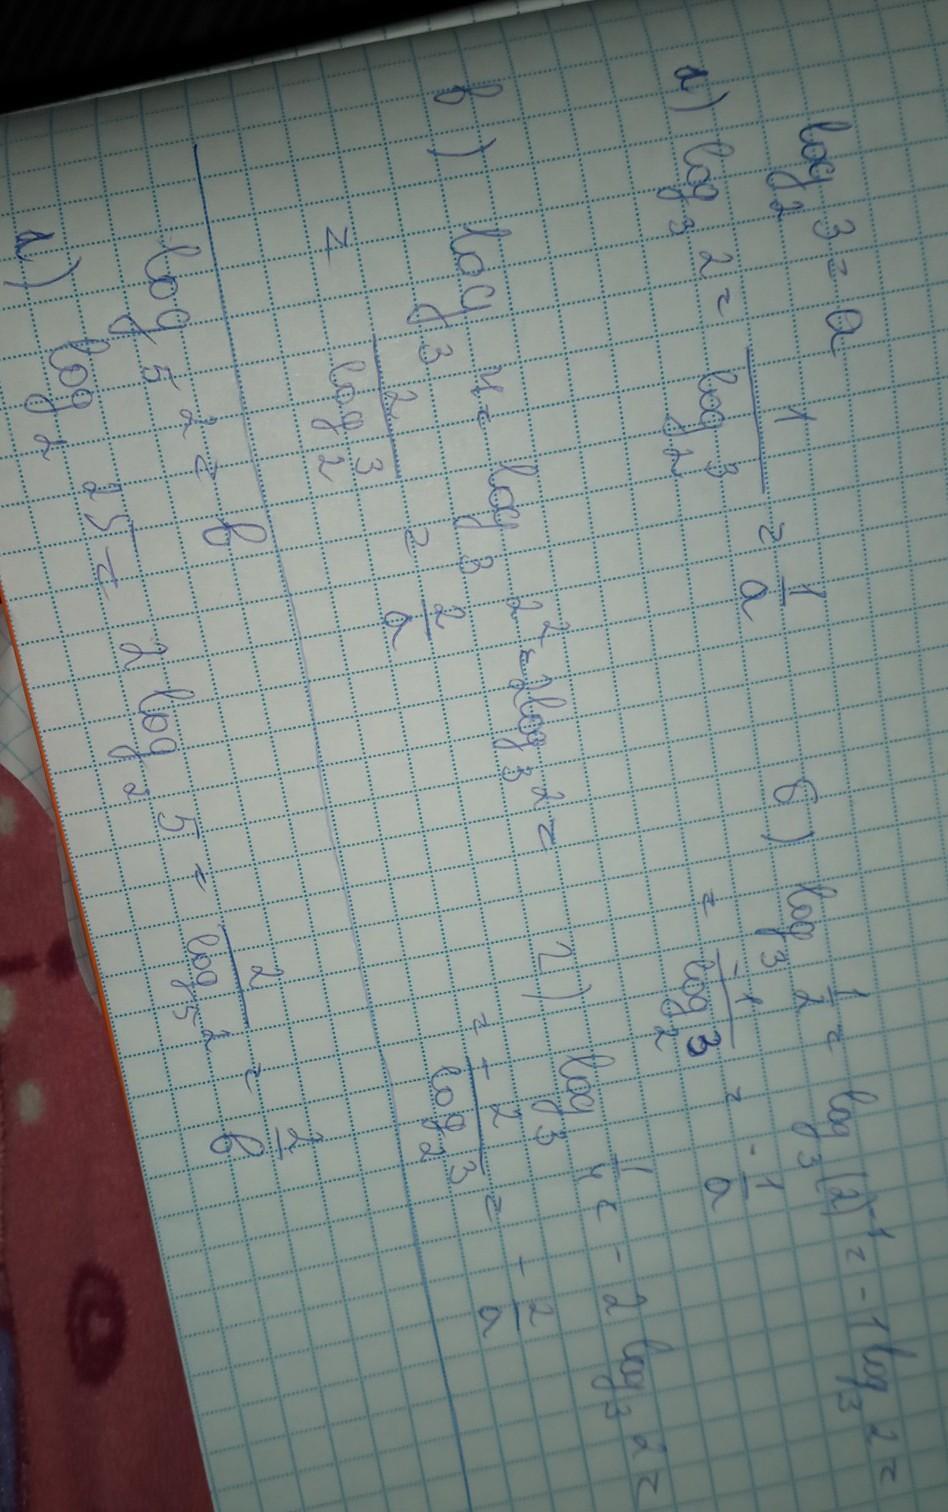 log₂ 3 = a
а) log₃ 2 = 1/log₂ 3 = 1/a
б) log₃ 1/2 = log₃ (2)⁻¹ = -1 log₃ 2 =
= -1/log₂ 3 = -1/a
в) log₃ 4 = log₃ 2² = 2log₃ 2 =
= 2/log₂ 3 = 2/a
г) log₃ 1/4 = - 2 log₃ 2 =
= - 2/log₂ 3 = - 2/a
log₅ 2 = b
а) log₂ 25 = 2 log₂ 5 = 2/log₅ 2 = 2/b